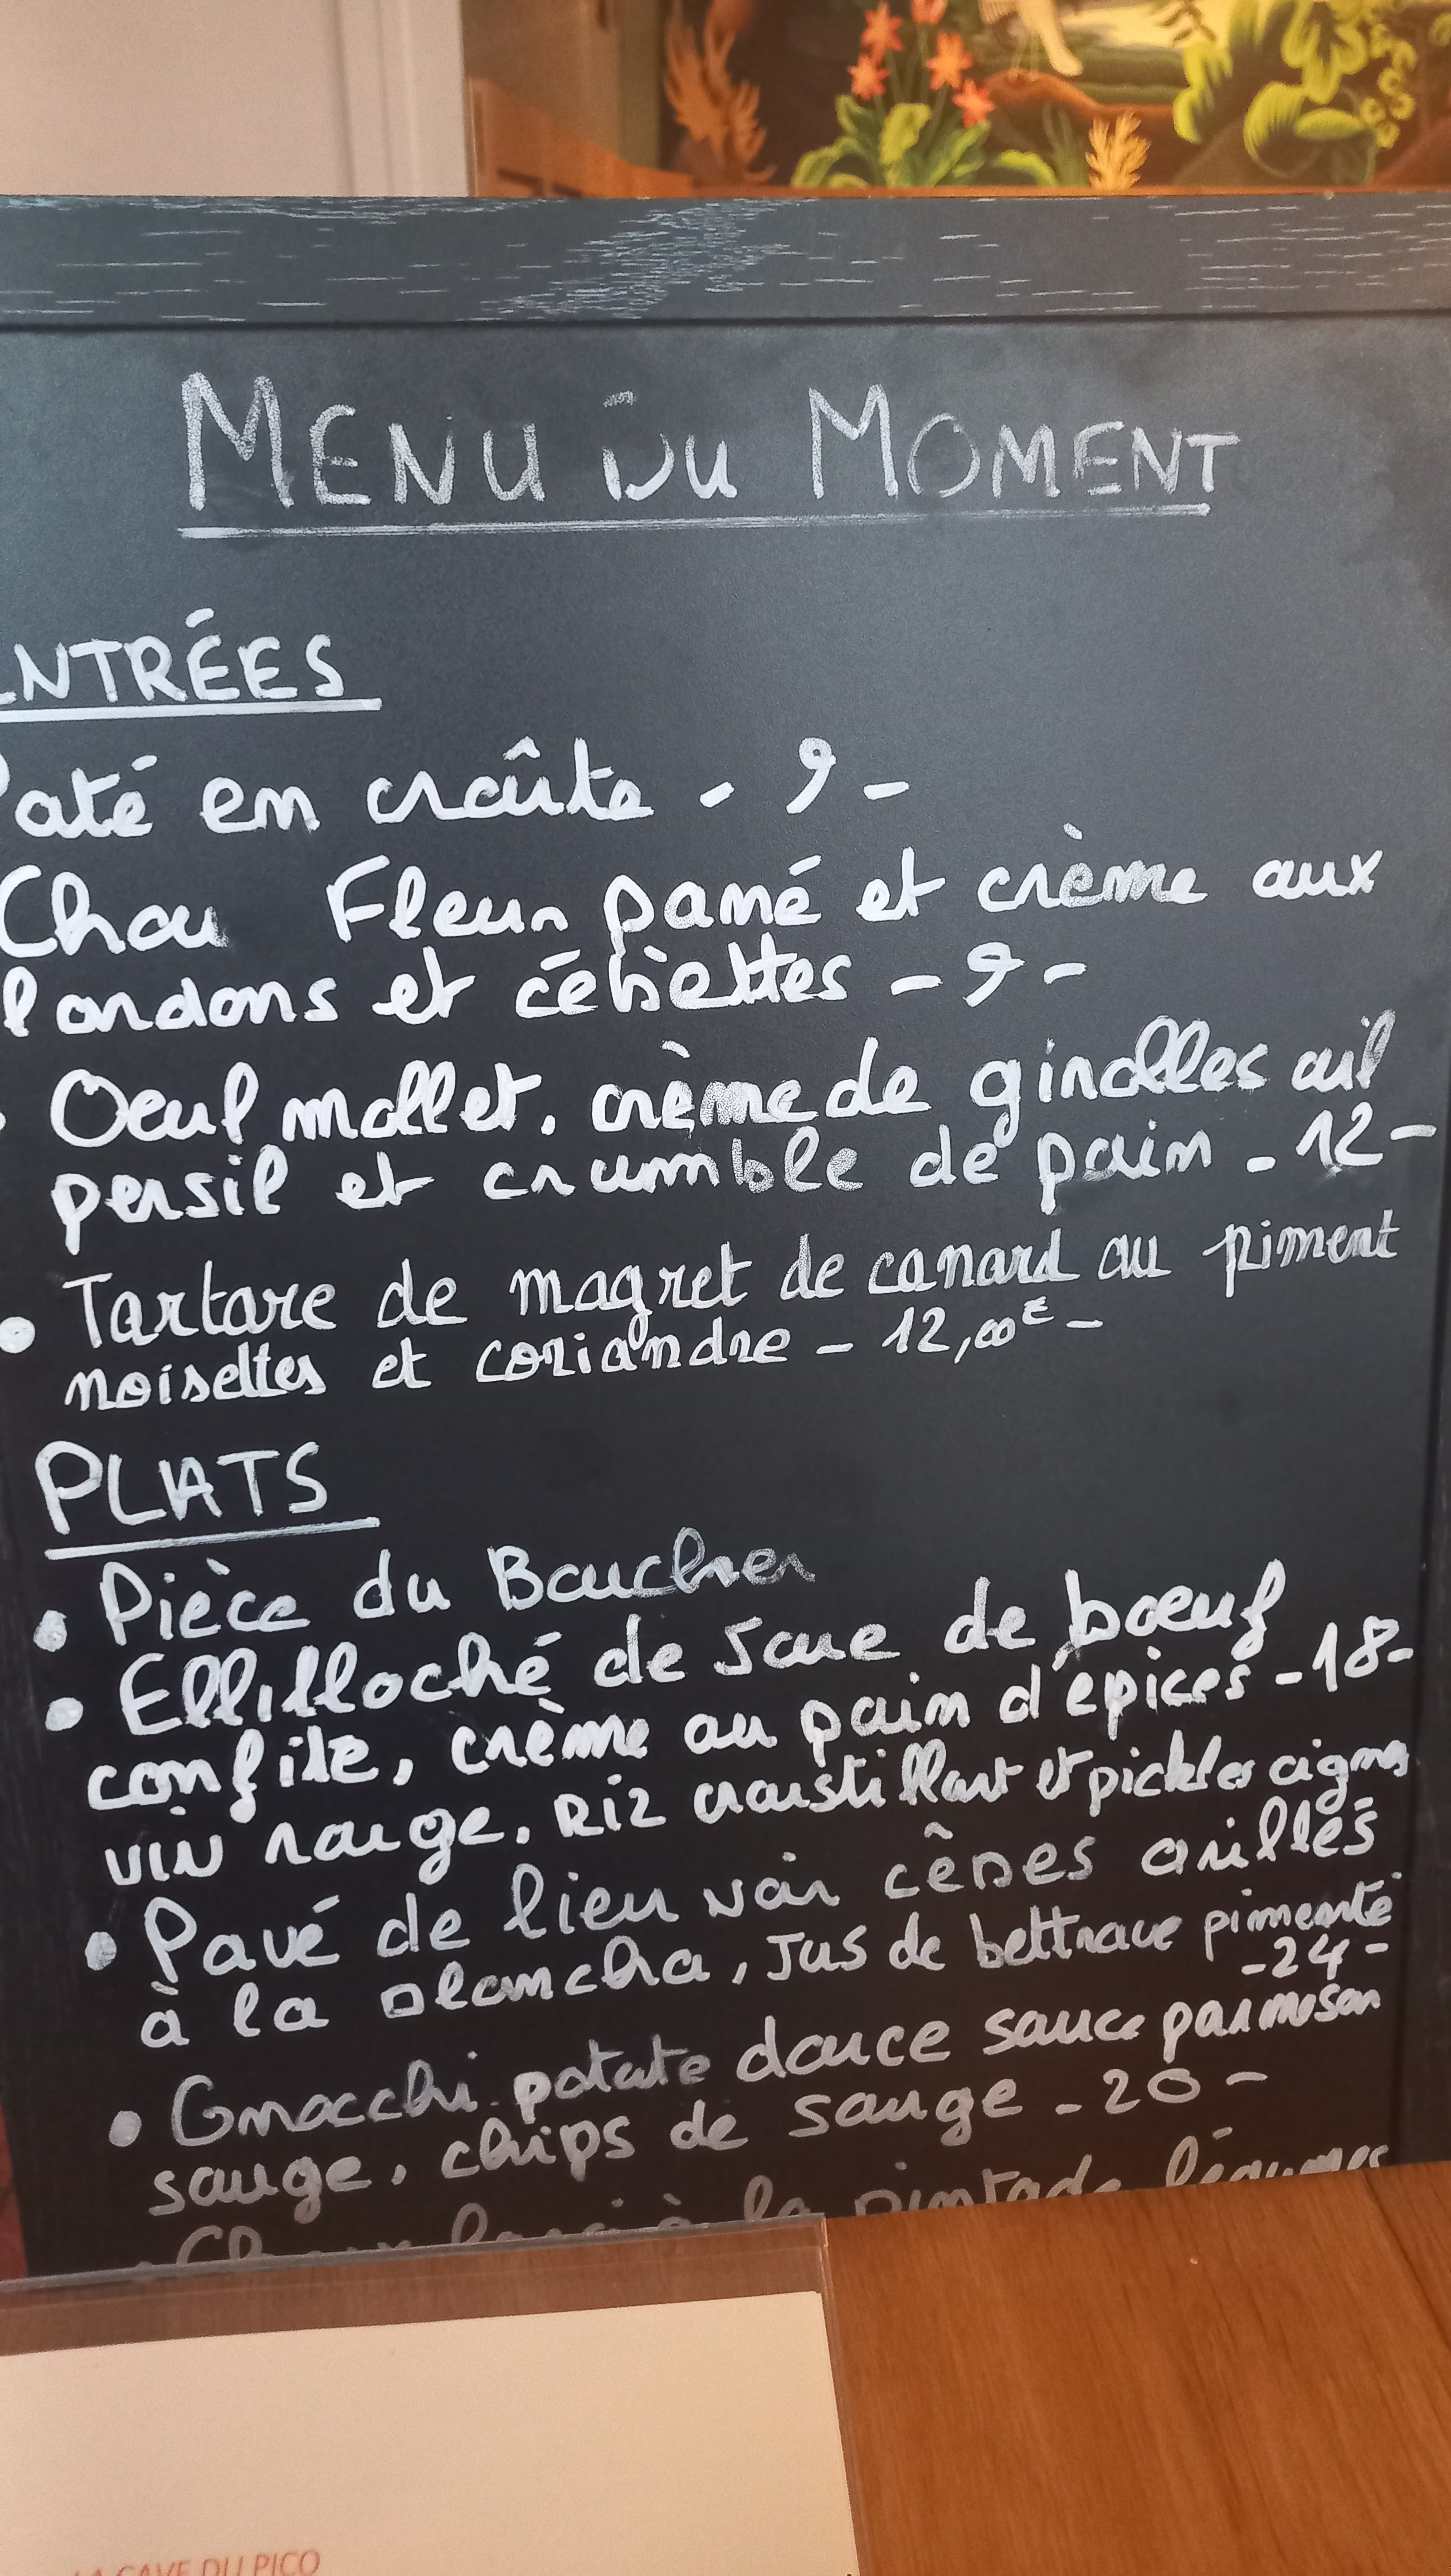 MENU DU MOMENT
ENTRÉES
Paté en croûte - 9 -
Chou Fleur pané et crème aux
lardons et cébettes - 9 -
Oeuf mollet, crème de girolles ail
persil et crumble de pain - 12 -
• Tartare de magret de canard au piment
noisettes et coriandre - 12,00€ -
PLATS
• Pièce du Boucher
• Effiloché de joue de boeuf
confite, crème au pain d'épices - 18 -
VIN rouge, RIZ croustillant et pickles
• Pavé de lieu noir cêpes aillés
à la plancha, Jus de bettrave pimenté
- 24 -
• Gnocchi patate douce sauce parmesan
sauge, chips de sauge - 20 -
à la pintade légumes
LA CAVE DU PICO